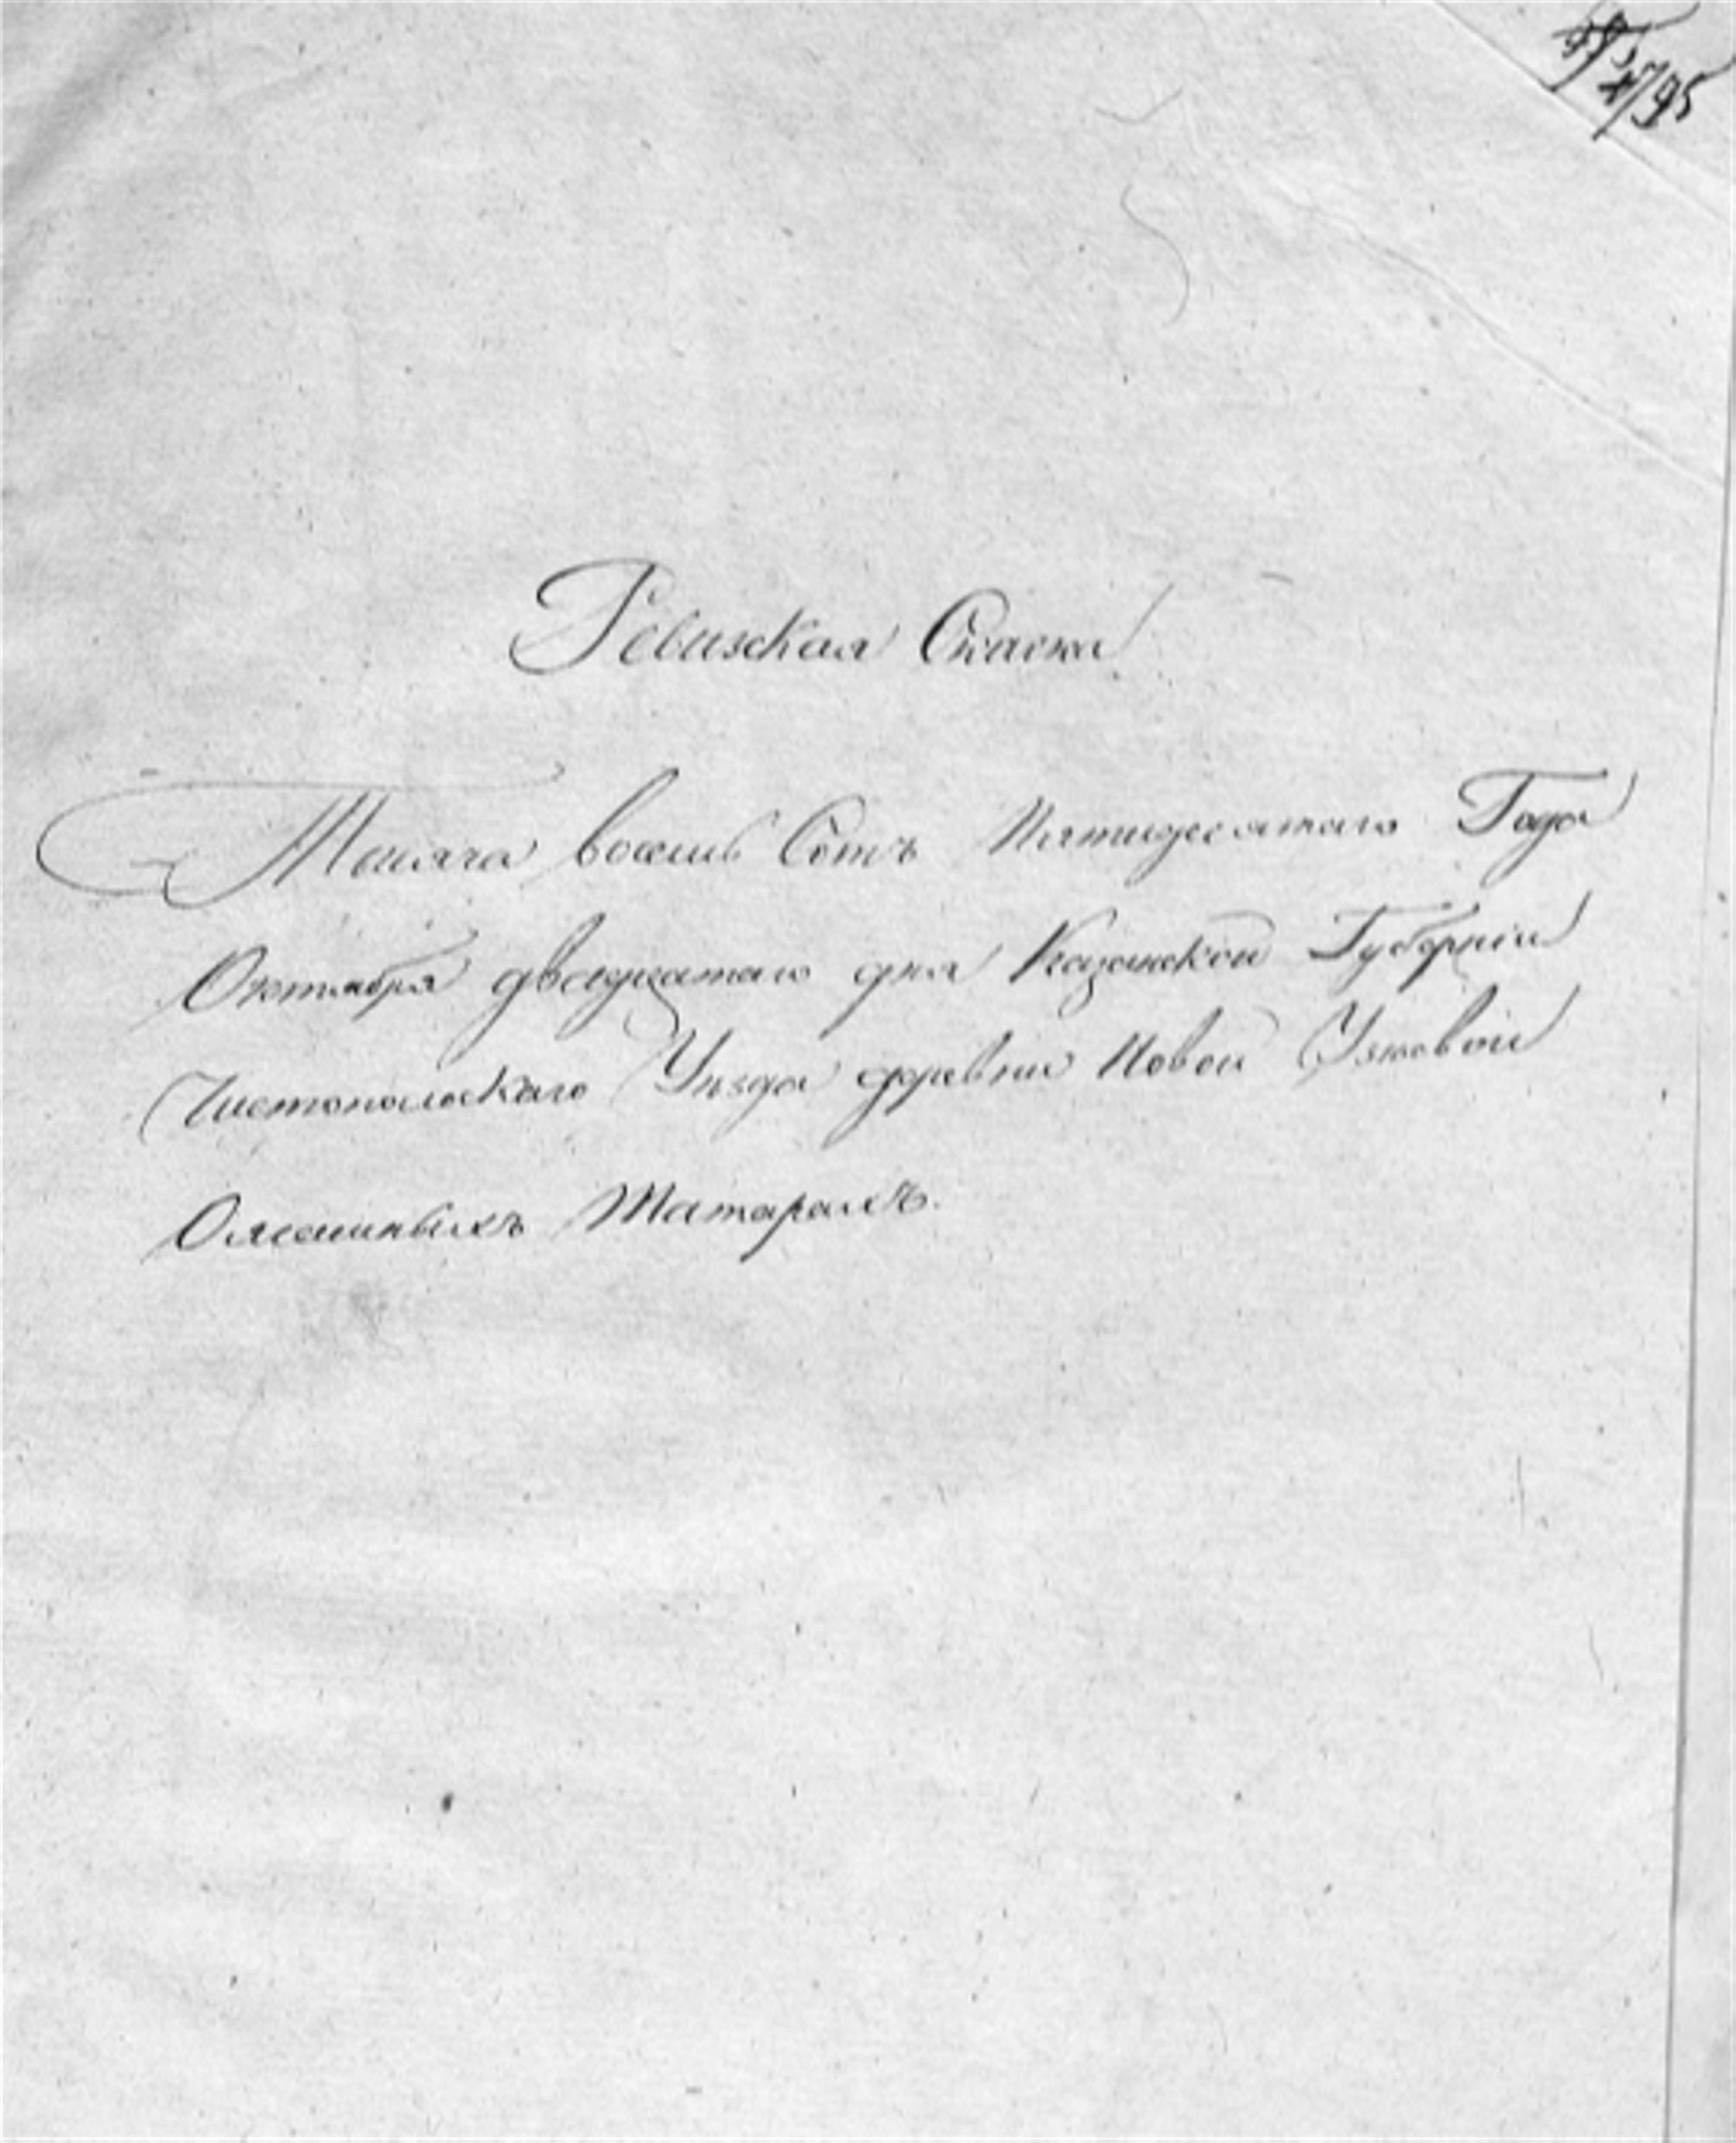 Ревизская Скаска
Тысяча восемь Сотъ Пятидесятаго Года
Октября двадцатаго дня Казанской Губерніи
Чистопольскаго Уѣзда деревни Новой Узеевой
О ясашныхъ Татарахъ.